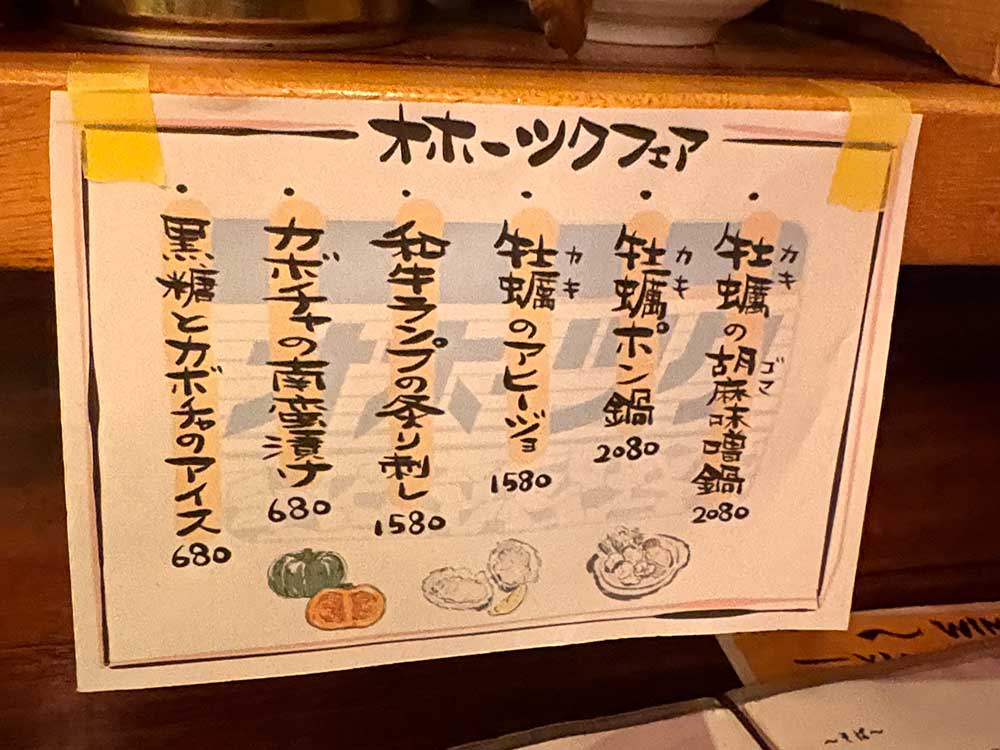 オホーツクフェア
・牡蠣の胡麻味噌鍋 2080
カキ
ゴマ
・牡蠣ポン鍋 2080
カキ
・牡蠣のアヒージョ 1580
カキ
・和牛ランプの炙り刺し 1580
・カボチャの南蛮漬け 680
・黒糖とカボチャのアイス 680
オホーツク
〜WIN
〜そば〜